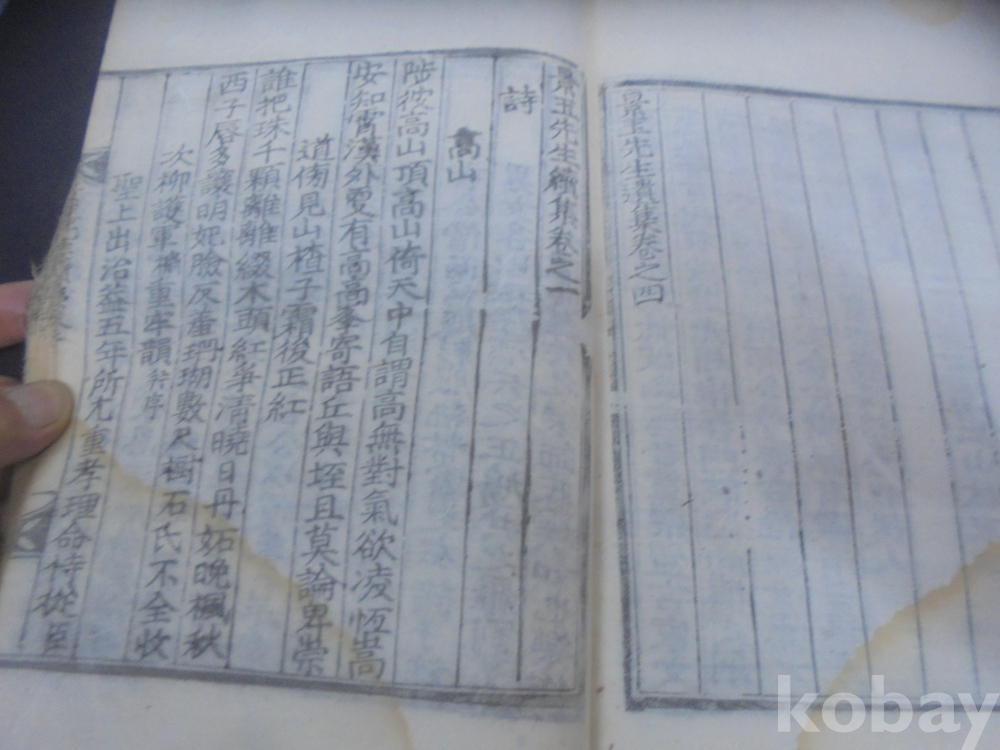 景丑先生遺集卷之四
景丑先生續集卷之一
詩
高山
陟彼高山頂高山倚天中自謂高無對氣欲凌恆嵩
安知霄漢外更有高高峯寄語丘與垤且莫論卑崇
道傍見山楂子霜後正紅
誰把珠千顆離離綴木頭紅爭清曉日丹妬晩楓秋
西子唇多讓明妃臉反羞珊瑚數尺樹石氏不全收
次柳護軍重牢韻幷序
聖上出治茲五年所尤重孝理命侍從臣
kobay